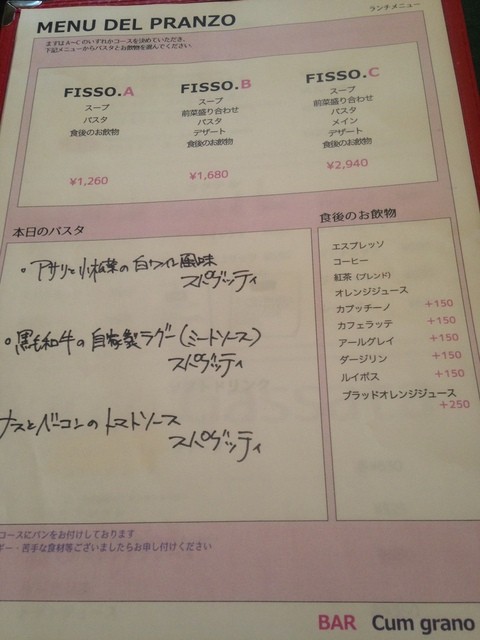 ランチメニュー
MENU DEL PRANZO
まずは A~C のいずれかコースを決めていただき、
下記メニューからパスタとお飲物を選んでください。
FISSO.A
スープ
パスタ
食後のお飲物
¥1,260
FISSO.B
スープ
前菜盛り合わせ
パスタ
デザート
食後のお飲物
¥1,680
FISSO.C
スープ
前菜盛り合わせ
パスタ
メイン
デザート
食後のお飲物
¥2,940
本日のパスタ
・アサリと小松菜の白ワイン風味
スパゲッティ
・黒毛和牛の自家製ラグー(ミートソース)
スパゲッティ
ナスとベーコンのトマトソース
スパゲッティ
食後のお飲物
エスプレッソ
コーヒー
紅茶 (ブレンド)
オレンジジュース
カプッチーノ +150
カフェラッテ +150
アールグレイ +150
ダージリン +150
ルイボス +150
ブラッドオレンジジュース
+250
コースにパンをお付けしております
ギー・苦手な食材等ございましたらお申し付けください
BAR Cum grano